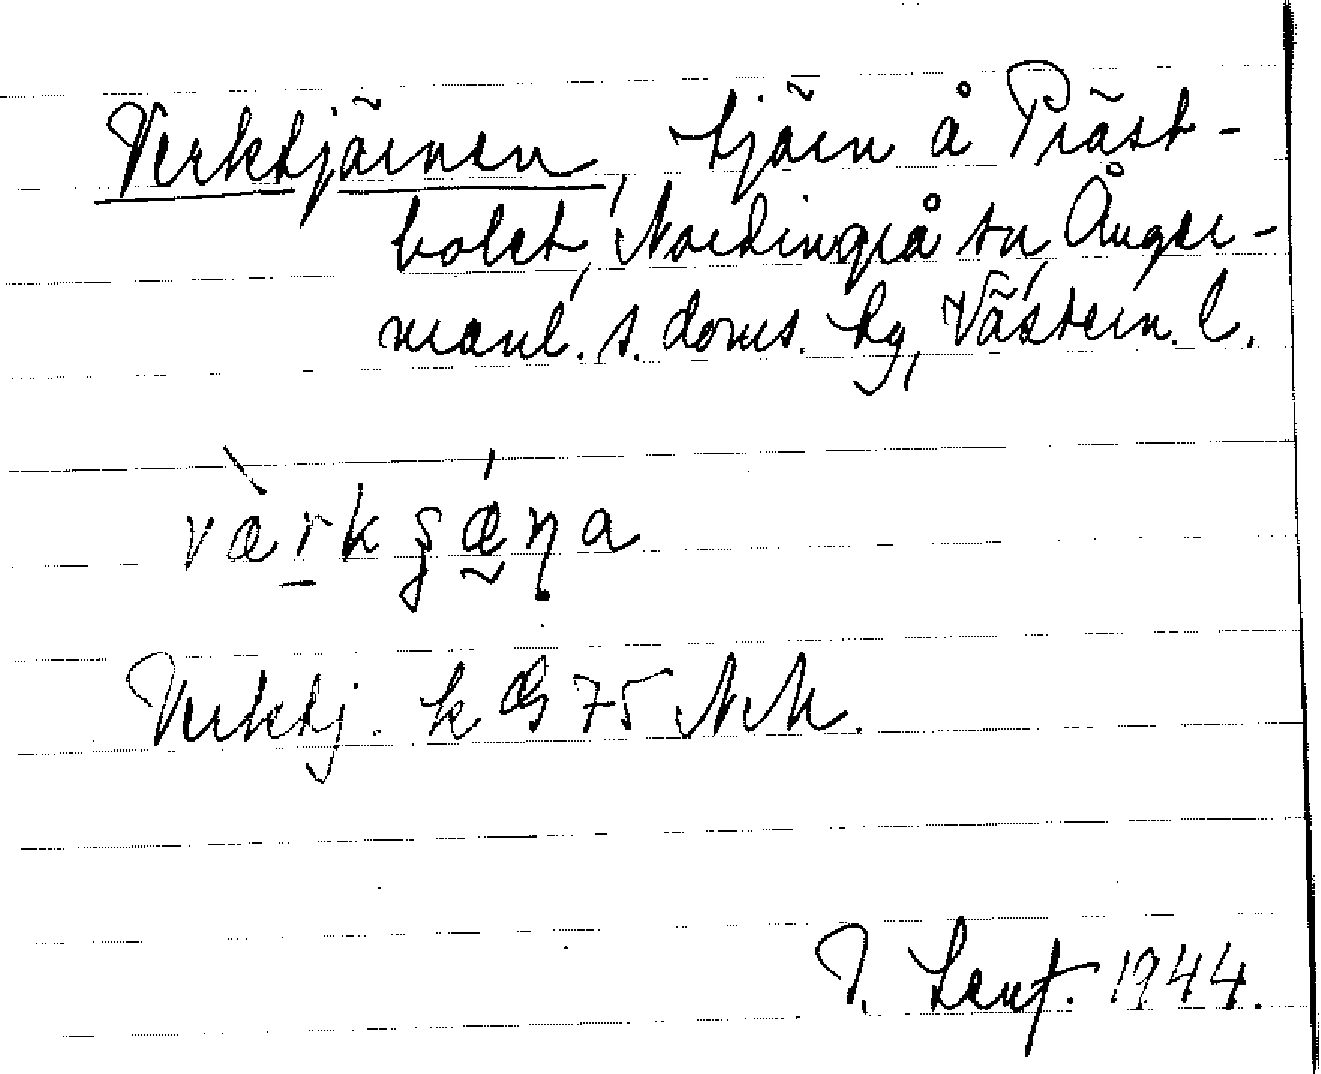 Verktjärnen, tjärn å Präst-
bolet, Nordingrå sn, Ånger-
manl. s. doms. hg, Västern. l.
værkʂæṇa
Verktj. k
75 NM.
1944.